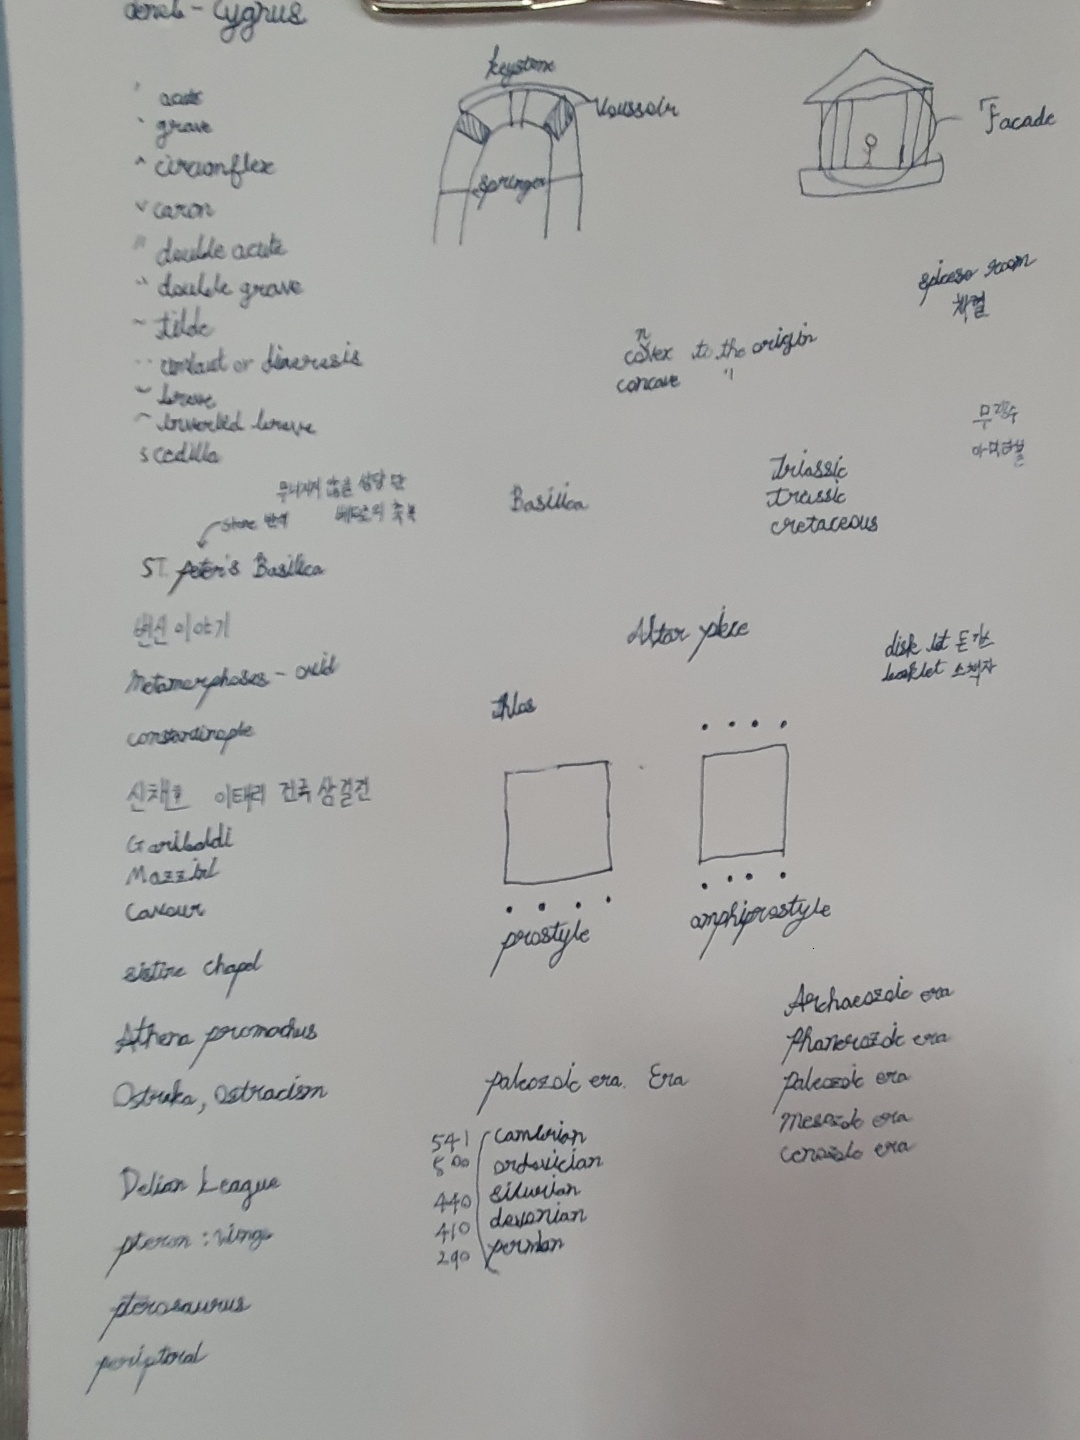 deneb - Cygnus
keystone
Voussoir
Facade
Springer
´ acute
` grave
^ circumflex
ˇ caron
˝ double acute
double grave
~ tilde
¨ umlaut or diaeresis
˘ breve
inverted breve
s cedilla
spicesr room
n
covex to the origin
concave "
무량수
Triassic
cretaceous
무너지지 않을 성당 단
stone 반석
베드로의 축복
Basilica
ST. peter's Basilica
변신 이야기
Altar piece
disk let 돈가스
booklet 소책자
Metamorphoses - ovid
constantinople
신채호 이태리 건국 삼걸전
Garibaldi
Mazzini
Cavour
prostyle
amphiprostyle
sistine chapel
Athena promachus
Ostraka, ostracism
Archaeozoic era
Phanerozoic era
paleozoic era
Mesozoic era
cenozoic era
paleozoic era. Era
541 cambrian
500 ordovician
440 silurian
410 devonian
290 permian
Delian League
pteron : wings
pterosaurus
peripteral